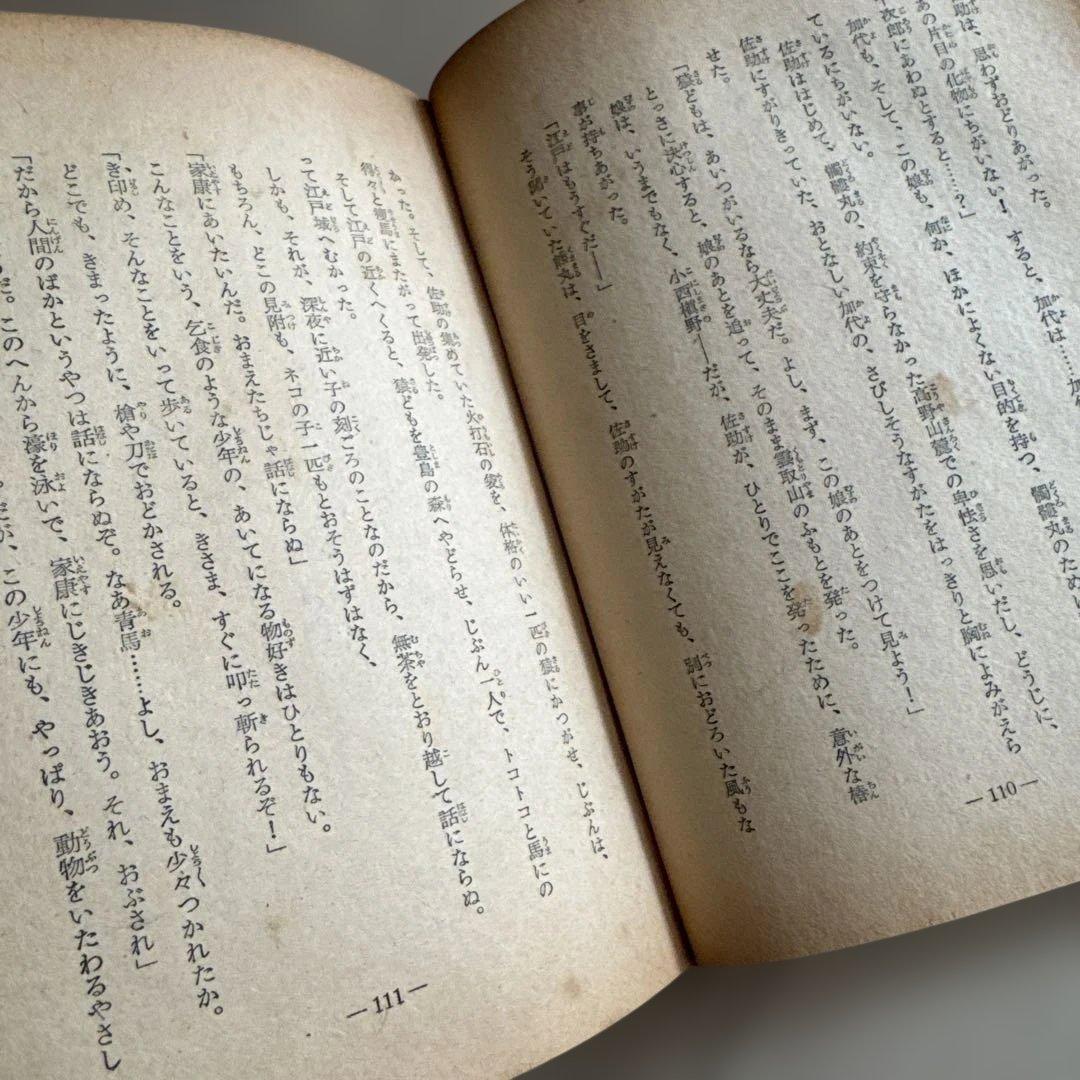 は、思わずおどりあがった。
あの片目の化物にちがいない! すると、加代は……加代
次郎にあわぬとすると……?」
加代も、そして、この娘も、何か、ほかによくない目的を持つ、髑髏丸のため
ているにちがいない。
佐助ははじめて、髑髏丸の、約束を守らなかった高野山麓での卑怯さを思いだし、どうじに、
佐助にすがりきっていた、おとなしい加代の、さびしそうなすがたをはっきりと胸によみがえら
せた。
「猿どもは、あいつがいるなら大丈夫だ。よし、まず、この娘のあとをつけて見よう!」
とっさに決心すると、娘のあとを追って、そのまま雲取山のふもとを発った。
娘は、いうまでもなく、小西槙野――だが、佐助が、ひとりでここを発ったために、意外な椿
事が持ちあがった。
「江戸はもうすぐだ――」
そう聞いていた丸は、目をさまして、佐助のすがたが見えなくても、別におどろいた風もな
かった。そして、佐助の集めていた火打石の袋を、体格のいい一匹の猿にかつがせ、じぶんは、
得々と馬にまたがって出発した。
そして江戸の近くへくると、猿どもを豊島の森へやどらせ、じぶん一人で、トコトコと馬にの
って江戸城へむかった。
しかも、それが、深夜に近い子の刻ごろのことなのだから、無茶をとおり越して話にならぬ。
もちろん、どこの見附も、ネコの子一匹もとおそうはずはなく、
「家康にあいたいんだ。おまえたちじゃ話にならぬ」
こんなことをいう、乞食のような少年の、あいてになる物好きはひとりもない。
「き印め、そんなことをいって歩いていると、きさま、すぐに叩っ斬られるぞ!」
どこでも、きまったように、槍や刀でおどかされる。
「だから人間のばかというやつは話にならぬぞ。なあ青馬……よし、おまえも少々つかれたか。
だ。このへんから濠を泳いで、家康にじきじきあおう。それ、おぶされ」
だが、この少年にも、やっぱり、動物をいたわるやさし
― 110 ―
― 111 ―